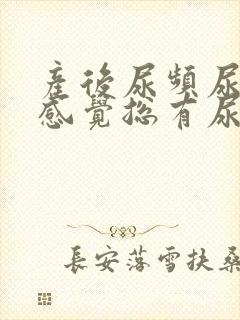 產後尿頻尿
感覺總有尿
長安落雪扶桑